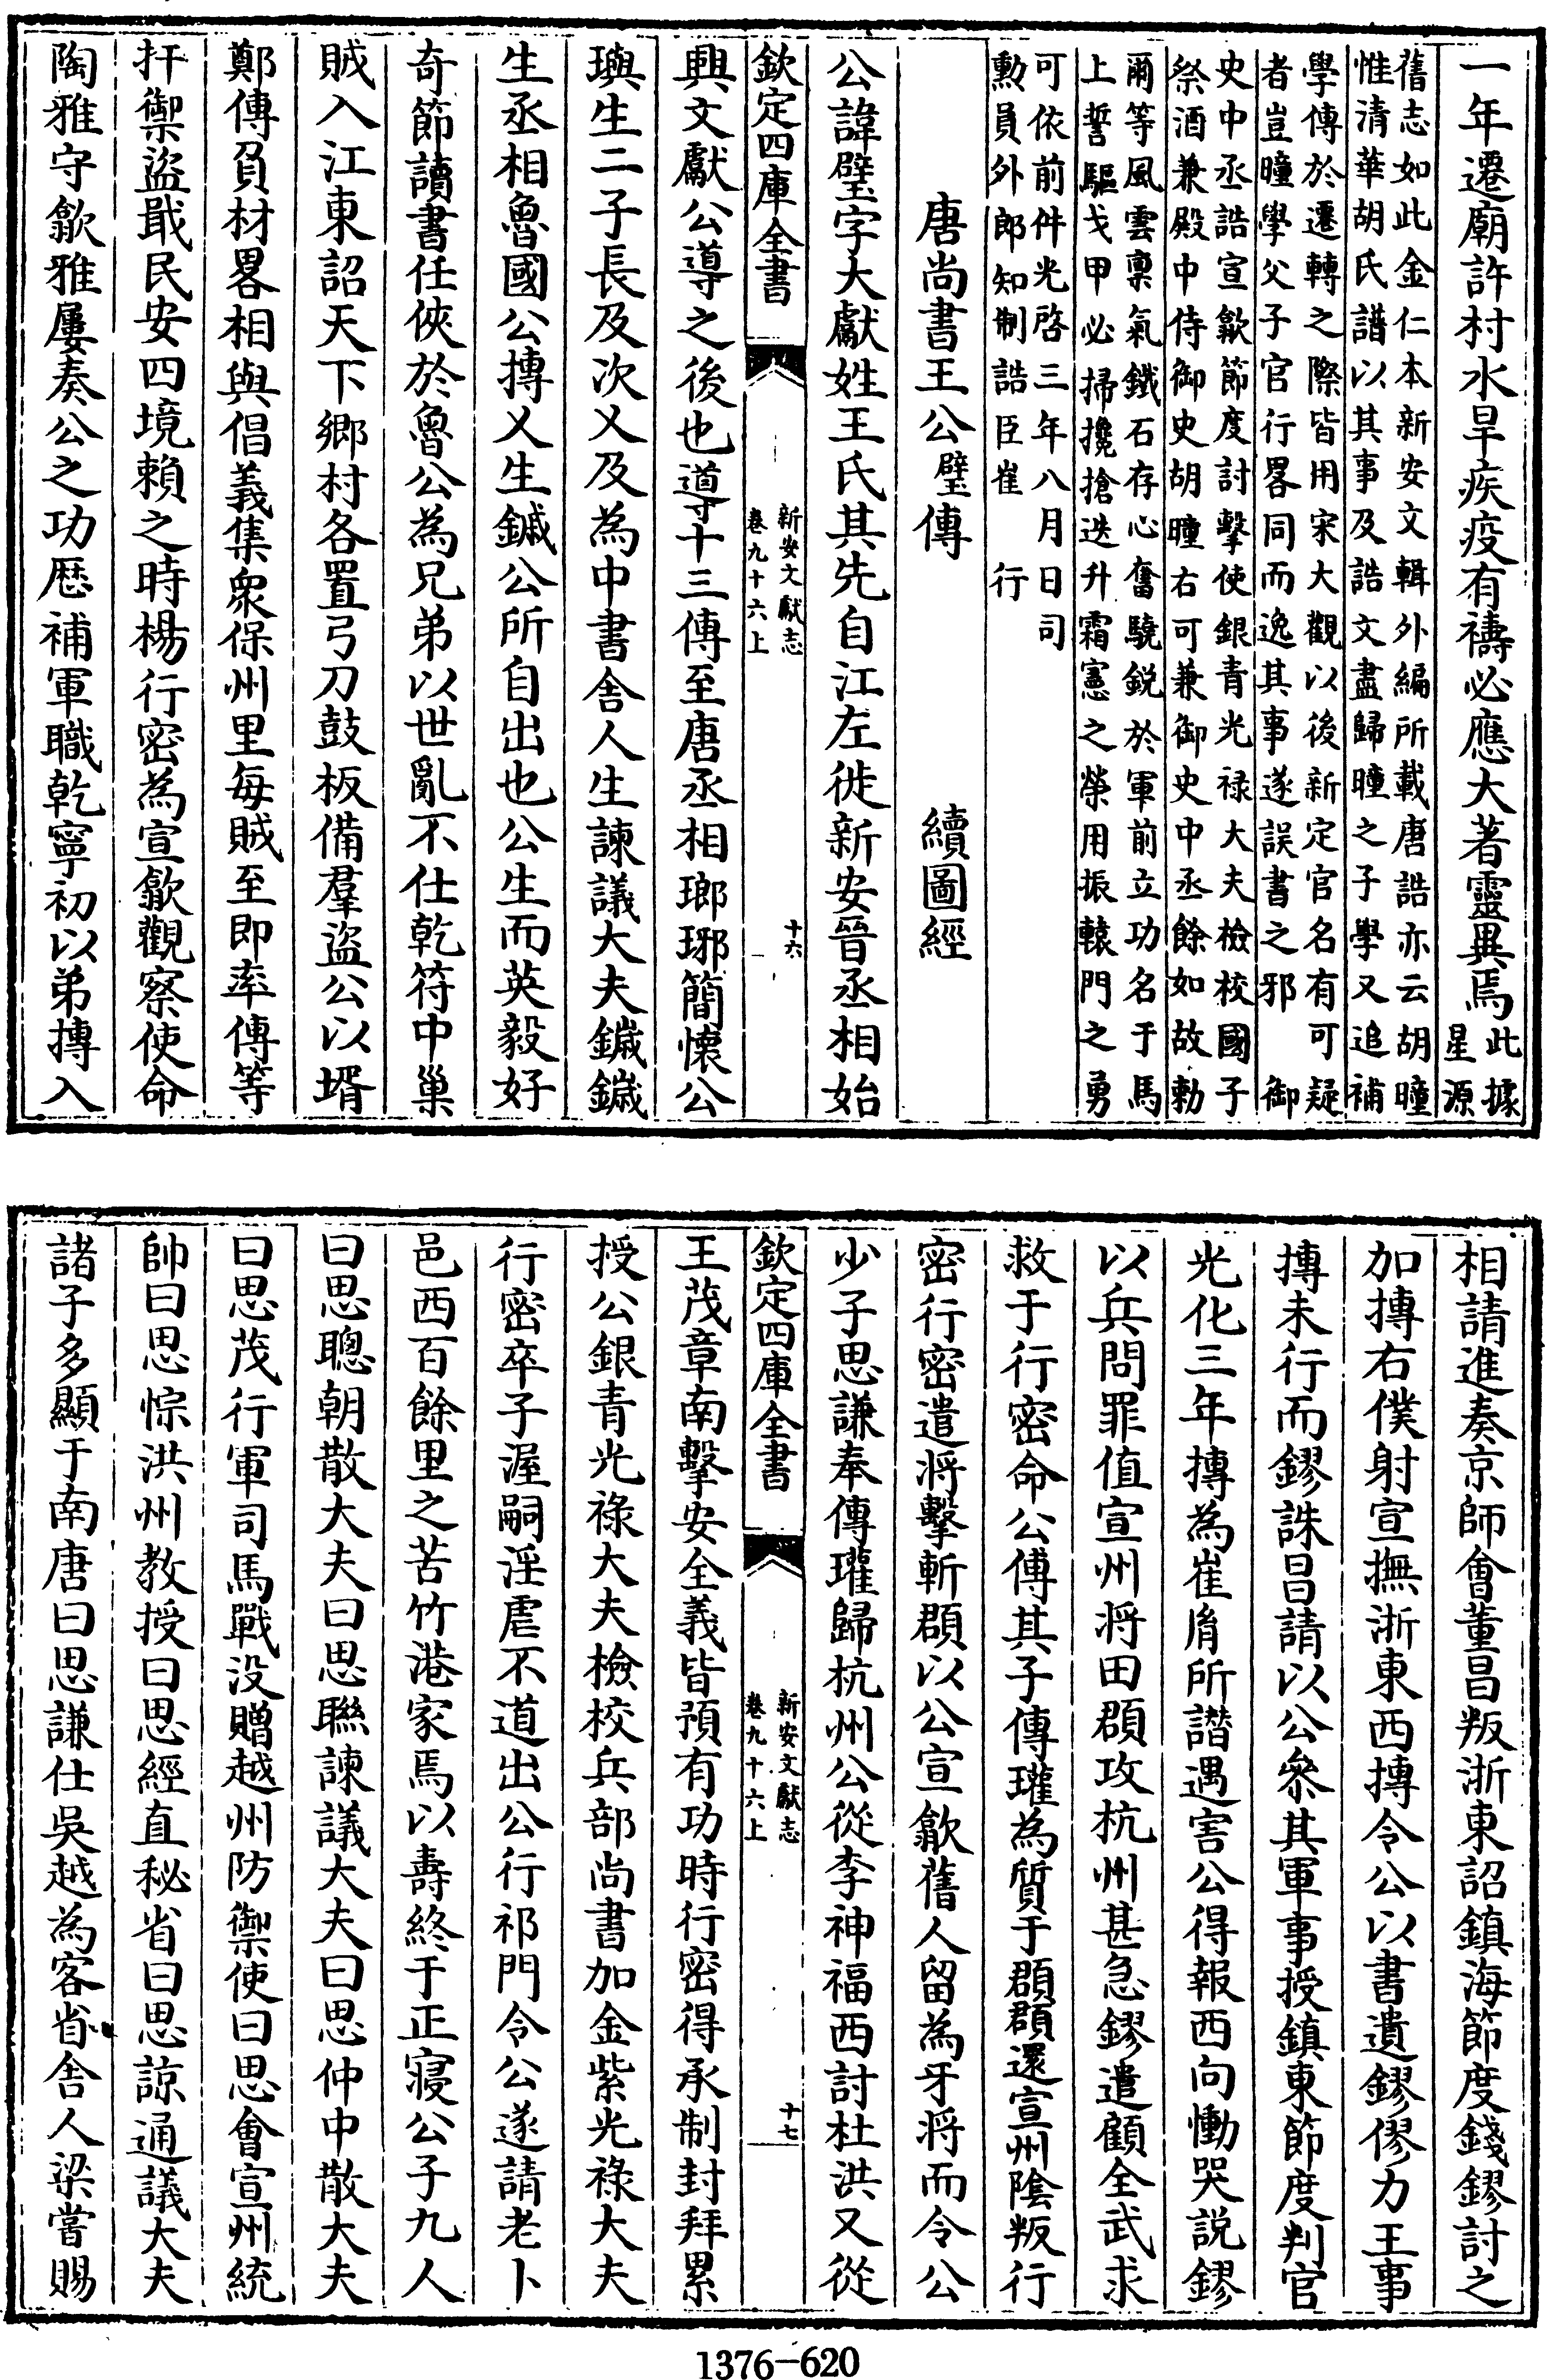 一年遷廟許村水旱疾疫有禱必應大著靈異焉此據星源
舊志如此金仁本新安文輯外編所載唐誥亦云胡曈
惟清華胡氏譜以其事及誥文盡歸曈之子學又追補
學傳於遷轉之際皆用宋大觀以後新定官名有可疑
者豈曈學父子官行畧同而逸其事遂誤書之邪 御
史中丞誥宣歙節度討擊使銀青光禄大夫檢校國子
祭酒兼殿中侍御史胡曈右可兼御史中丞餘如故勅
爾等風雲禀氣鐵石存心奮驍銳於軍前立功名于馬
上誓驅戈甲必掃攙搶迭升霜憲之榮用振轅門之勇
可依前件光啓三年八月日司
勳員外郎知制誥臣崔 行
唐尚書王公璧傳 續圖經
公諱璧字大獻姓王氏其先自江左徙新安晉丞相始
欽定四庫全書
新安文獻志
卷九十六上
十六
興文獻公導之後也導十三傳至唐丞相瑯琊簡懷公
璵生二子長及次乂及為中書舍人生諫議大夫鏚鏚
生丞相魯國公摶乂生鏚公所自出也公生而英毅好
奇節讀書任俠於魯公為兄弟以世亂不仕乾符中巢
賊入江東詔天下鄉村各置弓刀鼓板備羣盜公以壻
鄭傳負材畧相與倡義集衆保州里每賊至即率傳等
扞禦盜戢民安四境賴之時楊行密為宣歙觀察使命
陶雅守歙雅屢奏公之功歷補軍職乾寧初以弟摶入
相請進奏京師會董昌叛浙東詔鎮海節度錢鏐討之
加摶右僕射宣撫浙東西摶令公以書遺鏐僇力王事
摶未行而鏐誅昌請以公叅其軍事授鎮東節度判官
光化三年摶為崔胤所譖遇害公得報西向慟哭說鏐
以兵問罪值宣州將田頵攻杭州甚急鏐遣顧全武求
救于行密命公傅其子傳瓘為質于頵頵還宣州陰叛行
密行密遣將擊斬頵以公宣歙舊人留為牙將而令公
少子思謙奉傳瓘歸杭州公從李神福西討杜洪又從
欽定四庫全書
新安文獻志
卷九十六上
十七
王茂章南擊安全義皆預有功時行密得承制封拜累
授公銀青光祿大夫檢校兵部尚書加金紫光祿大夫
行密卒子渥嗣淫虐不道出公行祁門令公遂請老卜
邑西百餘里之苦竹港家焉以壽終于正寢公子九人
曰思聰朝散大夫曰思聮諫議大夫曰思仲中散大夫
曰思茂行軍司馬戰没贈越州防禦使曰思會宣州統
帥曰思悰洪州教授曰思經直秘省曰思諒通議大夫
諸子多顯于南唐曰思謙仕吳越為客省舍人梁嘗賜
1376-620